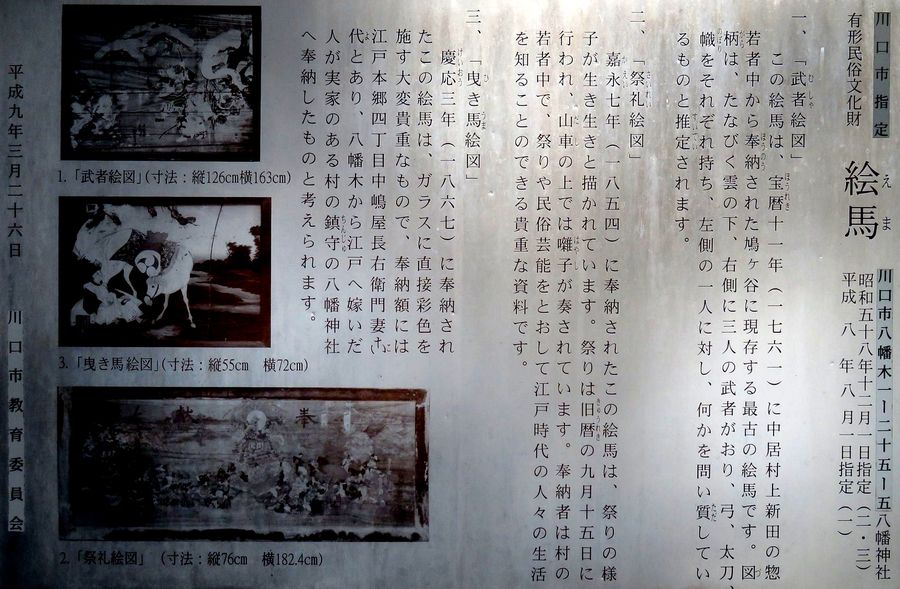 川口市指定
有形民俗文化財
絵馬
えま
川口市八幡木一ー二十五ー五八幡神社
昭和五十八年十二月一日指定(二・三)
平成 八 年 八 月一日指定(一)
一、「武者絵図」
この絵馬は、宝暦十一年(一七六一)に中居村上新田の惣
若者中から奉納された鳩ヶ谷に現存する最古の絵馬です。図
柄は、たなびく雲の下、右側に三人の武者がおり、弓、太刀、
幟をそれぞれ持ち、左側の一人に対し、何かを問い質してい
るものと推定されます。
二、「祭礼絵図」
嘉永七年(一八五四)に奉納されたこの絵馬は、祭りの様
子が生き生きと描かれています。祭りは旧暦の九月十五日に
行われ、山車の上では囃子が奏されています。奉納者は村の
若者中で、祭りや民俗芸能をとおして江戸時代の人々の生活
を知ることのできる貴重な資料です。
三、「曳き馬絵図」
慶応三年(一八六七)に奉納され
たこの絵馬は、ガラスに直接彩色を
施す大変貴重なもので、奉納額には
江戸本郷四丁目中嶋屋長右衛門妻
代とあり、八幡木から江戸へ嫁いだ
人が実家のある村の鎮守の八幡神社
へ奉納したものと考えられます。
1.「武者絵図」(寸法:縦126cm横163cm)
3.「曳き馬絵図」(寸法:縦55cm 横72cm)
奉
2.「祭礼絵図」 (寸法:縦76cm 横182.4cm)
平成九年三月二十六日 川口市教育委員会